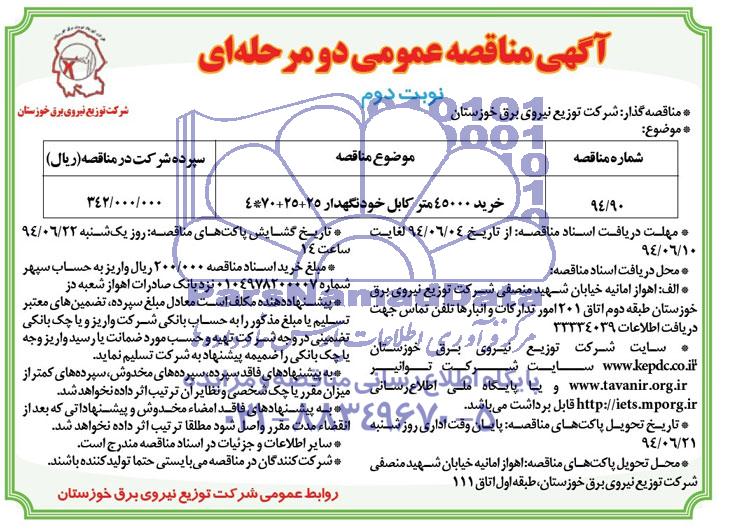 آگهی مناقصه عمومی دو مرحله‌ای
نوبت دوم
شرکت توزیع نیروی برق خوزستان
* مناقصه گذار: شرکت توزیع نیروی برق خوزستان
* موضوع:
شماره مناقصه موضوع مناقصه سپرده شرکت در مناقصه (ریال)
۹۴/۹۰ خرید ۴۵۰۰۰ متر کابل خودنگهدار ۲۵+۲۵+۷۰*۴ ۳۴۲/۰۰۰/۰۰۰
* مهلت دریافت اسناد مناقصه: از تاریخ ۹۴/۰۶/۰۴ لغایت
۹۴/۰۶/۱۰
* محل دریافت اسناد مناقصه:
* الف: اهواز امانیه خیابان شهید منصفی شرکت توزیع نیروی برق
خوزستان طبقه دوم اتاق ۲۰۱ امور تدارکات و انبارها تلفن تماس جهت
دریافت اطلاعات ۳۳۳۳۴۰۳۹
* سایت شرکت توزیع نیروی برق خوزستان
www.kepdc.co.ir سایت شرکت توانیر
www.tavanir.org.ir و یا پایگاه ملی اطلاع‌رسانی
http://iets.mporg.ir قابل برداشت می‌باشد.
* تاریخ تحویل پاکت‌های مناقصه: پایان وقت اداری روز شنبه
۹۴/۰۶/۲۱
* محل تحویل پاکت‌های مناقصه: اهواز امانیه خیابان شهید منصفی
شرکت توزیع نیروی برق خوزستان، طبقه اول اتاق ۱۱۱
* تاریخ گشایش پاکت‌های مناقصه: روز یک‌شنبه ۹۴/۰۶/۲۲
ساعت ۱۴
* مبلغ خرید اسناد مناقصه ۲۰۰/۰۰۰ ریال واریز به حساب سپهر
شماره ۰۱۰۴۹۷۸۲۰۰۰۰۷ نزد بانک صادرات اهواز شعبه دز
* پیشنهاددهنده مکلف است معادل مبلغ سپرده، تضمین‌های معتبر
تسلیم یا مبلغ مذکور را به حساب بانکی شرکت واریز و یا چک بانکی
تضمینی در وجه شرکت تهیه و حسب مورد ضمانت یا رسید واریز وجه
یا چک بانکی را ضمیمه پیشنهاد به شرکت تسلیم نماید.
* به پیشنهادهای فاقد سپرده، سپرده‌های مخدوش، سپرده‌های کمتر از
میزان مقرر یا چک شخصی و نظایر آن ترتیب اثر داده نخواهد شد.
* به پیشنهادهای فاقد امضاء مخدوش و پیشنهاداتی که بعد از
انقضاء مدت مقرر واصل شود مطلقا ترتیب اثر داده نخواهد شد.
* سایر اطلاعات و جزئیات در اسناد مناقصه مندرج است.
* شرکت کنندگان در مناقصه می‌بایستی حتما تولیدکننده باشند.
روابط عمومی شرکت توزیع نیروی برق خوزستان
پایگاه اطلاع رسانی مناقصه و مزایده
۰۲۱-۸۸۳۴۹۶۷۰-۵